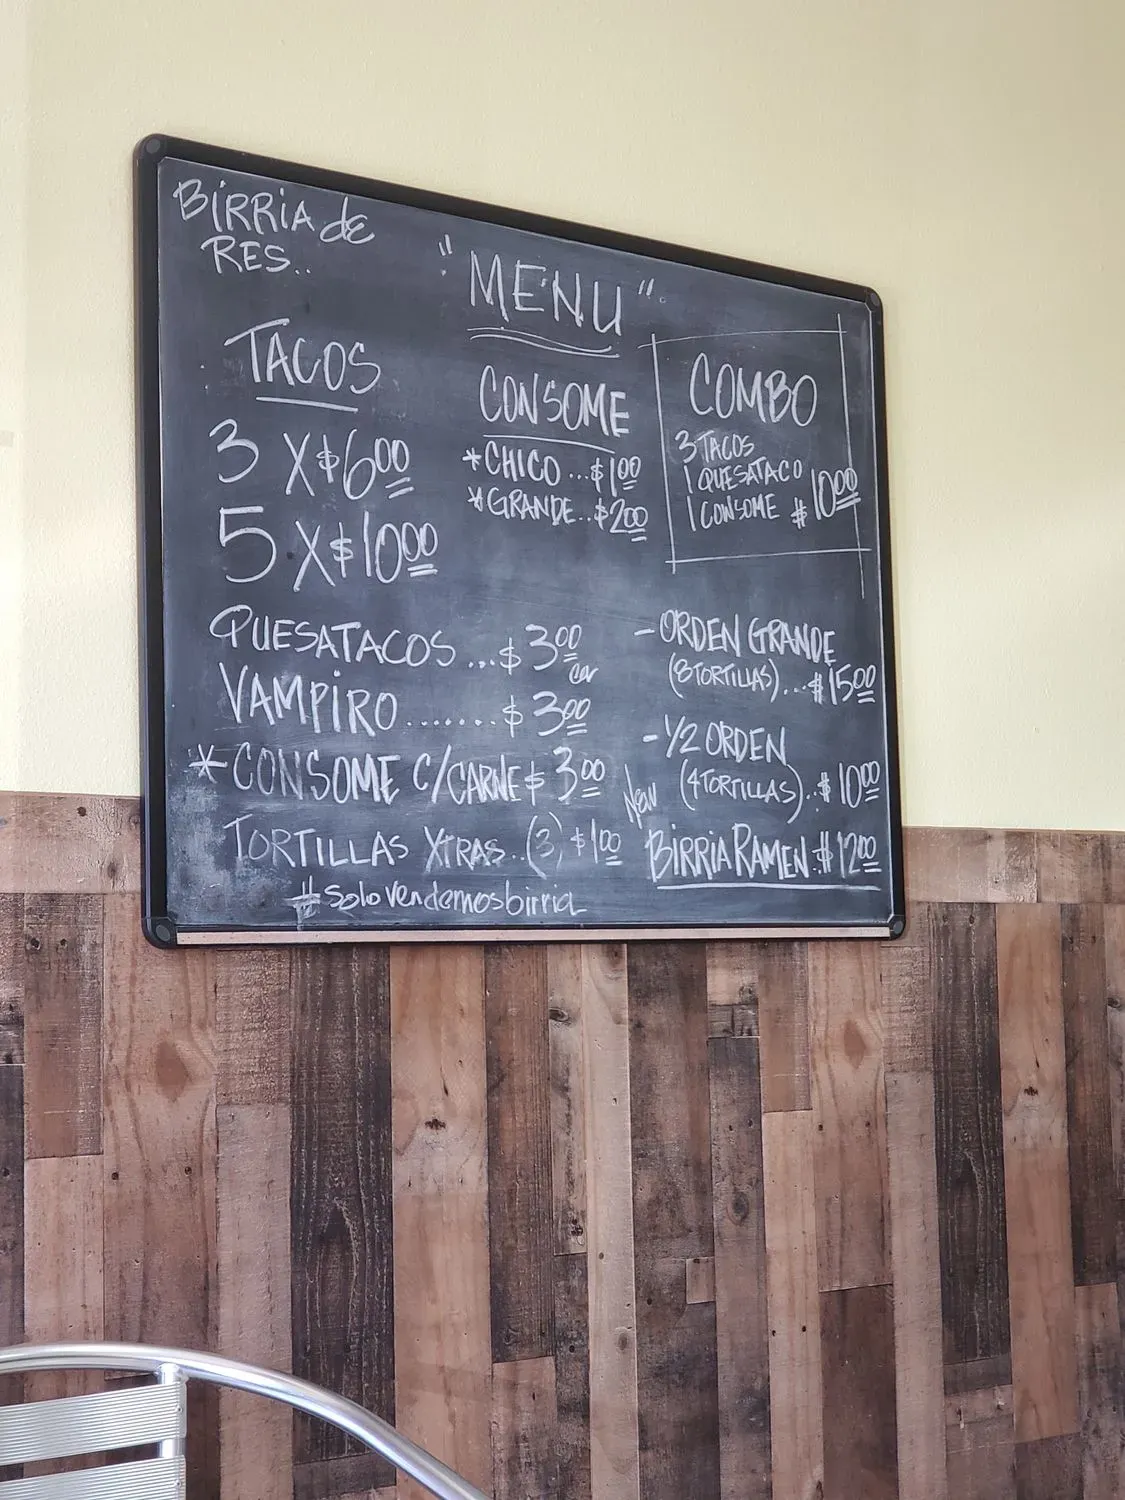 BIRRIA de
RES..
"MENU"
TACOS
3 X $6.00
5 X $10.00
CONSOME
*CHICO...$1.00
*GRANDE..$2.00
COMBO
3 TACOS
1 QUESATACO
1 CONSOME $10.00
QUESATACOS...$3.00
VAMPIRO.......$3.00
*CONSOME C/CARNE $3.00
TORTILLAS XTRAS..(3) $1.00
#solovendemosbirria
-ORDEN GRANDE
(8TORTILLAS)...$15.00
-1/2 ORDEN
(4TORTILLAS)..$10.00
New
BIRRIA RAMEN.$12.00